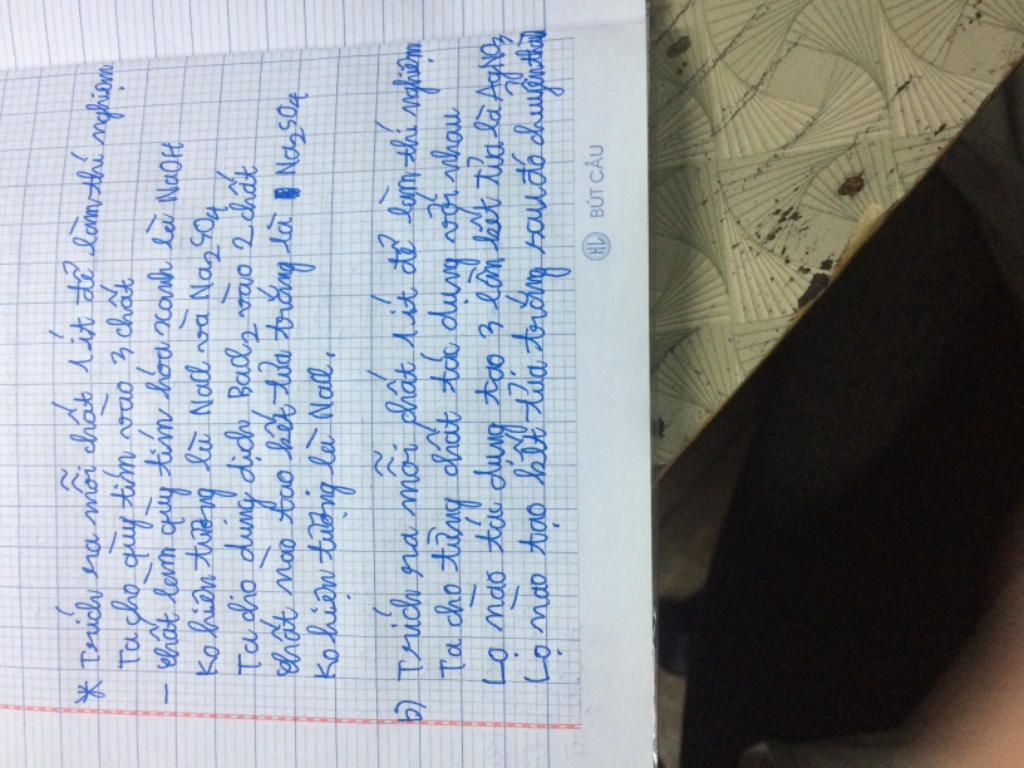 * Trích ra mỗi chất 1 ít để làm thí nghiệm
Ta cho quỳ tím vào 3 chất
- chất làm quỳ tím hóa xanh là NaOH
Ko hiện tượng là NaCl và Na2SO4
Ta cho dung dịch BaCl2 vào 2 chất
chất nào tạo kết tủa trắng là Na2SO4
Ko hiện tượng là NaCl.
b) Trích ra mỗi chất 1 ít để làm thí nghiệm
Ta cho từng chất tác dụng với nhau
Lọ nào tác dụng tạo 3 lần kết tủa là AgNO3
Lọ nào tạo kết tủa trắng sau đó chuyển thành
HL BÚT CÂU